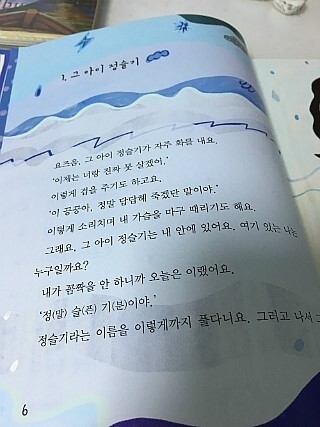 1. 그 아이 정슬기
요즈음, 그 아이 정슬기가 자주 화를 내요.
‘이제는 너랑 진짜 못 살겠어.’
이렇게 겁을 주기도 하고요.
‘이 꽁꽁아, 정말 답답해 죽겠단 말이야.’
이렇게 소리치며 내 가슴을 마구 때리기도 해요.
그래요. 그 아이 정슬기는 내 안에 있어요. 여기 있는 나는
누구일까요?
내가 꼼짝을 안 하니까 오늘은 이랬어요.
‘정(말) 슬(픈) 기(분)이야.’
정슬기라는 이름을 이렇게까지 풀다니요. 그러고 나서 그
6